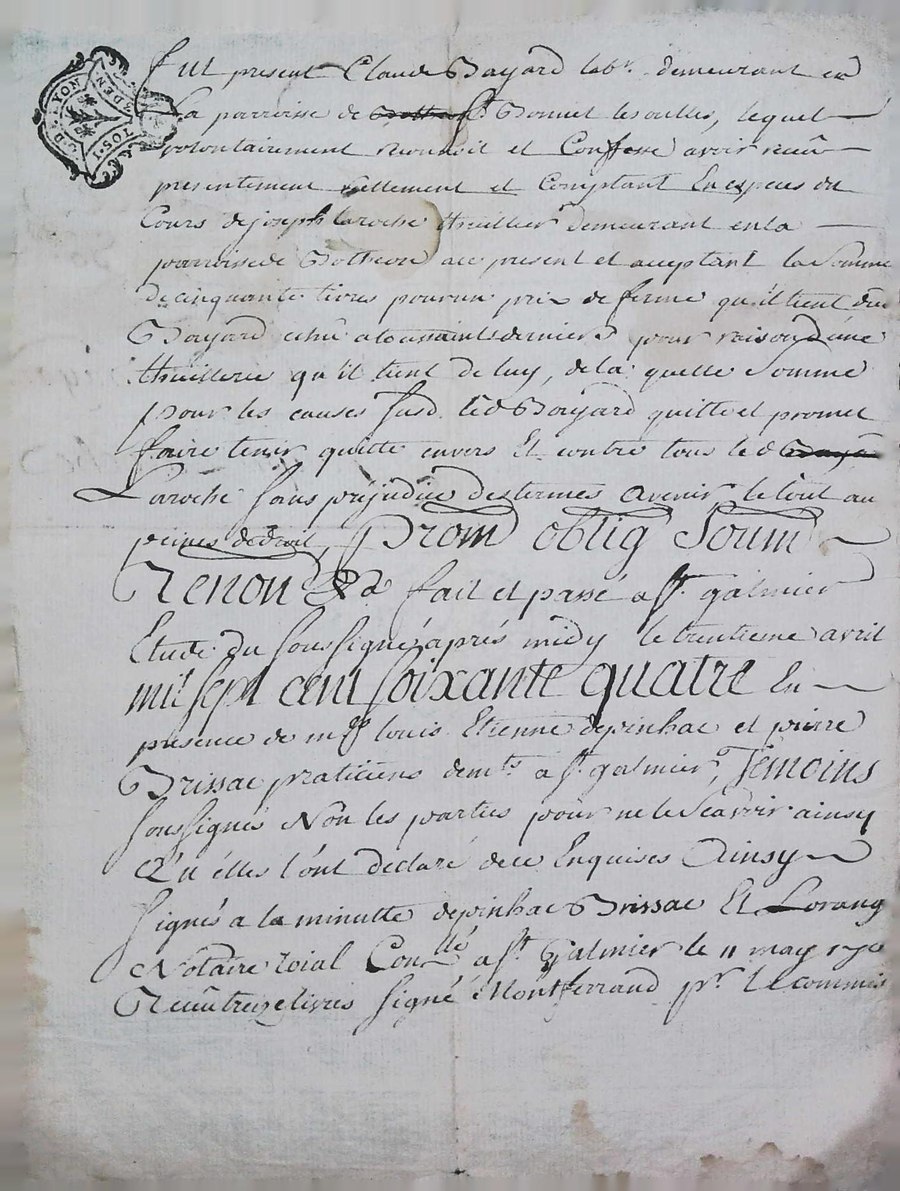 Fut present Claude Bayard labr. demeurant en
la parroisse de St. Bonnet les oulles, lequel
volontairement reconnoit et Confesse avoir receû
presentement reellement et Comptant En especes du
Cours de joseph laroche thuillier demeurant en la
parroisse de Botheon ace present et aceptant la Somme
de cinquante livres pour un prix de ferme qu'il tient dud
Bayard echû a toussaint dernier pour raison d'une
thuillerie qu'il tient de luy, de la quelle Somme
pour les causes susd. led Bayard quitte et promet
faire tenir quitte envers Et contre tous le d
Laroche sans prejudice des termes avenir le tout au
peines de droit, prom oblig Soum
Renon &a fait et passé a St. galmier
Etude du soussigné après midy le trentieme avril
mil sept cent soixante quatre En
presence de mes louis Etienne depinhac et pierre
Brissac praticiens demts. a St. galmier, Temoins
soussignés Non les parties pour ne le Scavoir ainsy
Qu'elles l'ont declaré de ce Enquises Ainsy
signés a la minutte depinhac Brissac Et Lorang
Notaire roial Conllé a St. Galmier le 11 may
Receu treize livres signé Montferrand pr. le commis